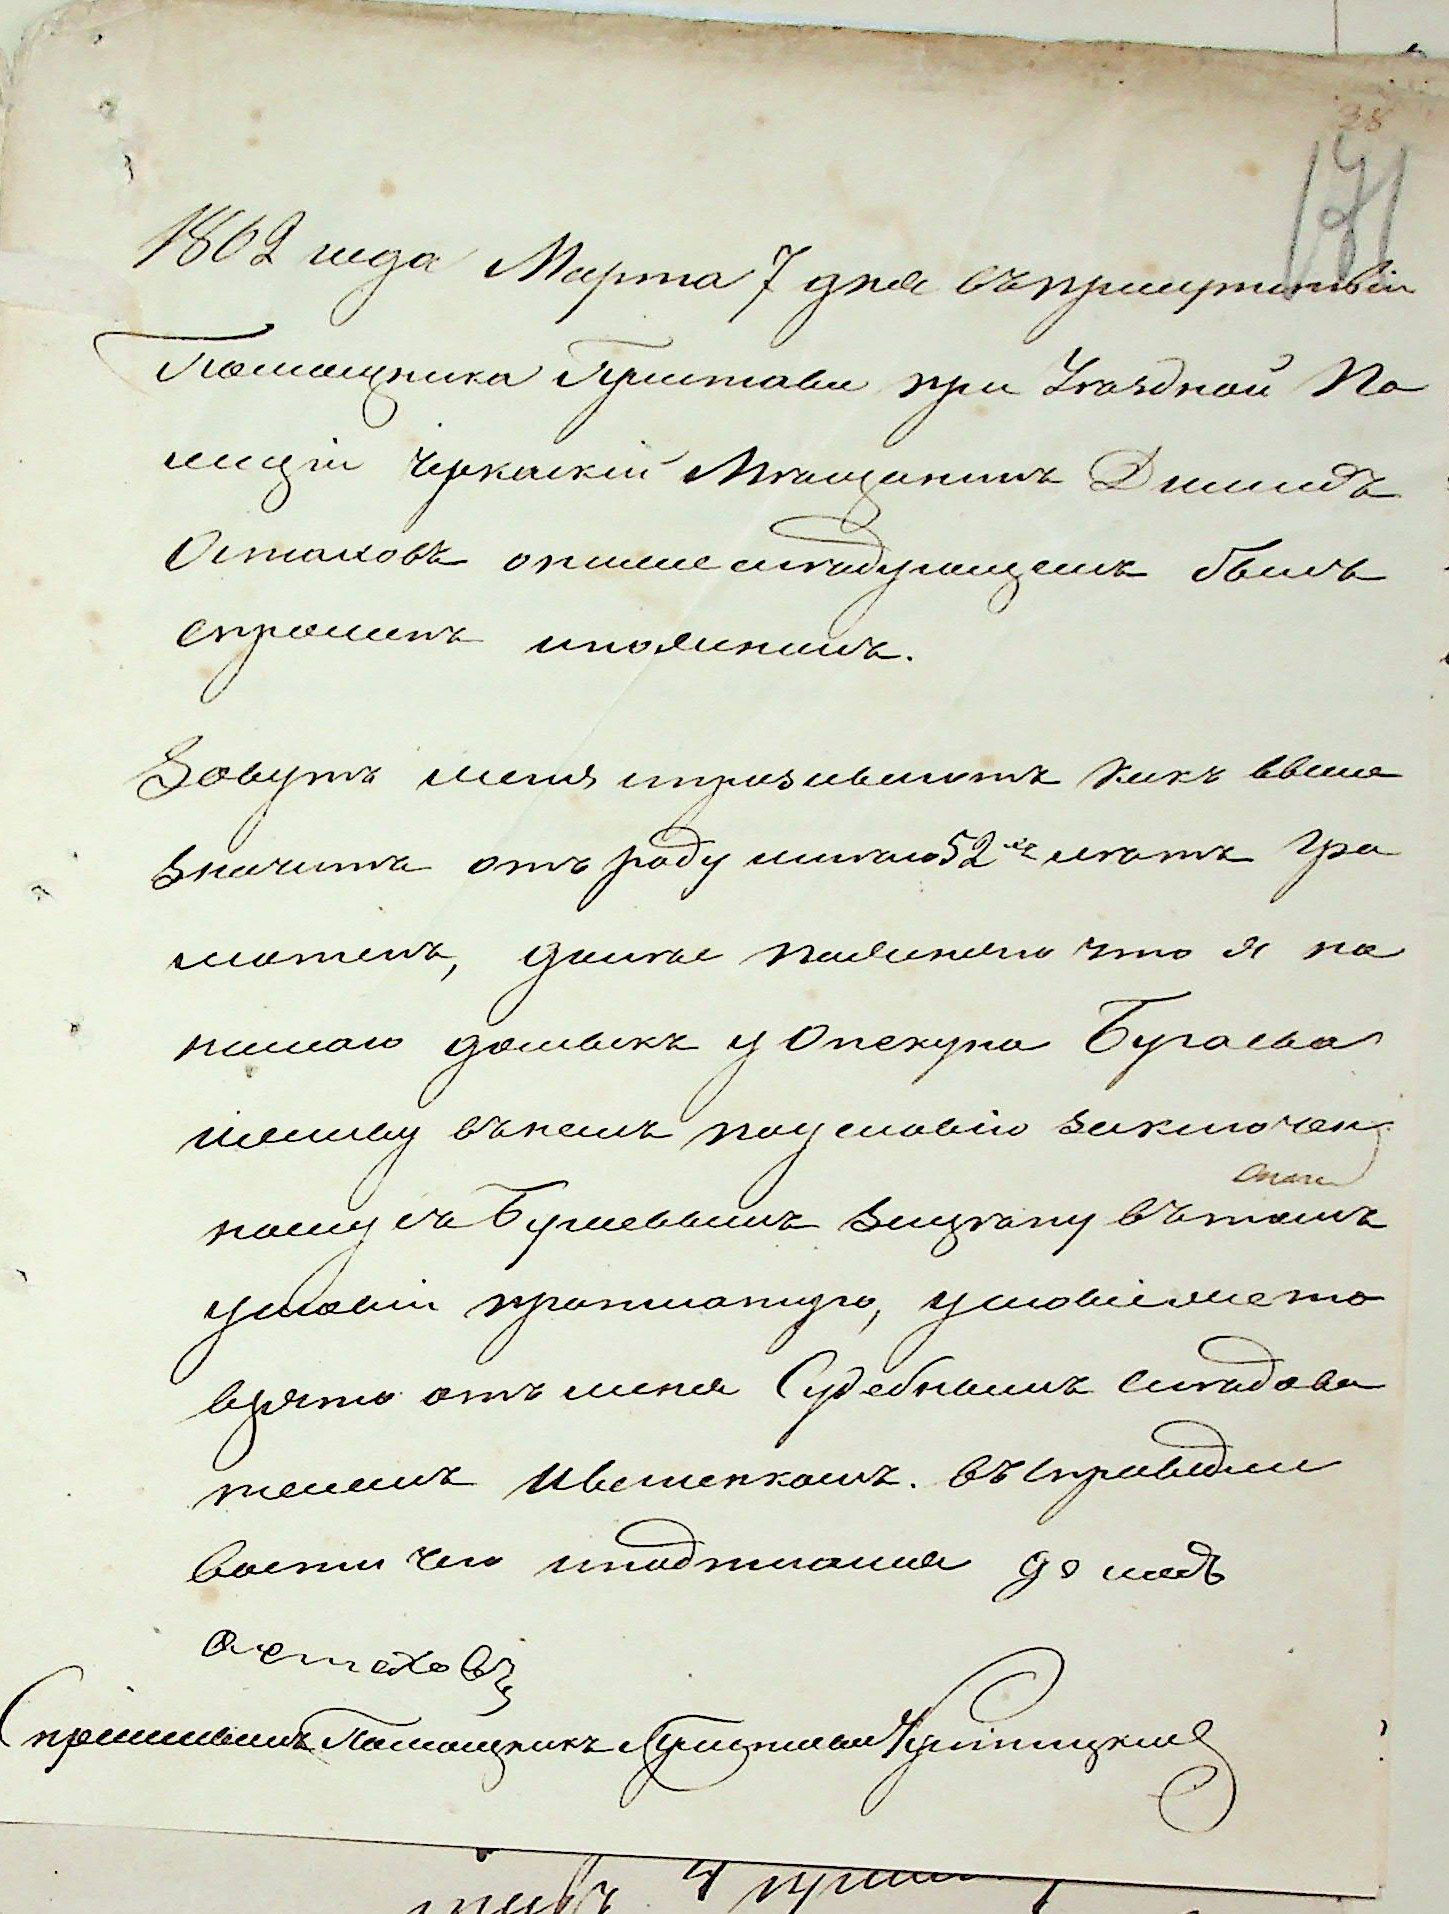 38
171
1862 года Марта 7 дня въ присутствіи
Помощника Пристава при Уѣздной По
лиціи Черкаскій Мѣщанинъ Диомидъ
Остаховъ о нижеслѣдующемъ былъ
спрошенъ и пояснилъ.
Зовутъ меня и прозываютъ какъ выше
значитъ отъ роду имѣю 52 лѣтъ Гра
мотенъ, далѣе поясняю что я на
нимаю домыкъ у Опекуна Бугаева
и живу въ немъ по условію заключен
ному съ Бугаевымъ за цѣну въ томъ
условіи прописанную, условіе же то
взято отъ меня Судебнымъ Слѣдова
телемъ Ивененкомъ. въ справедли
вости чего и подписался Диомидъ
Остаховъ
Спрашивалъ Помощникъ Пристава